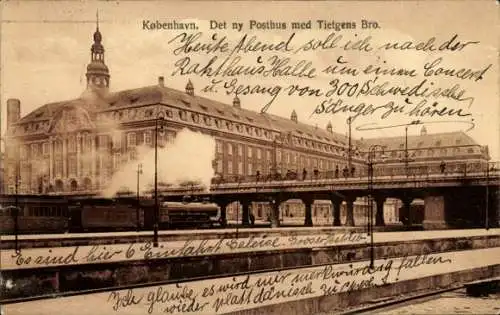 København. Det ny Posthus med Tietgens Bro.
Heute Abend soll ich nach der
Rathaus Halle um einen Concert
u. Gesang von 300 Schwedische
Sänger zu hören
Es sind hier 6 Einfahrt Geleise
Ich glaube es wird mir merkwürdig
wieder platt dänisch zu